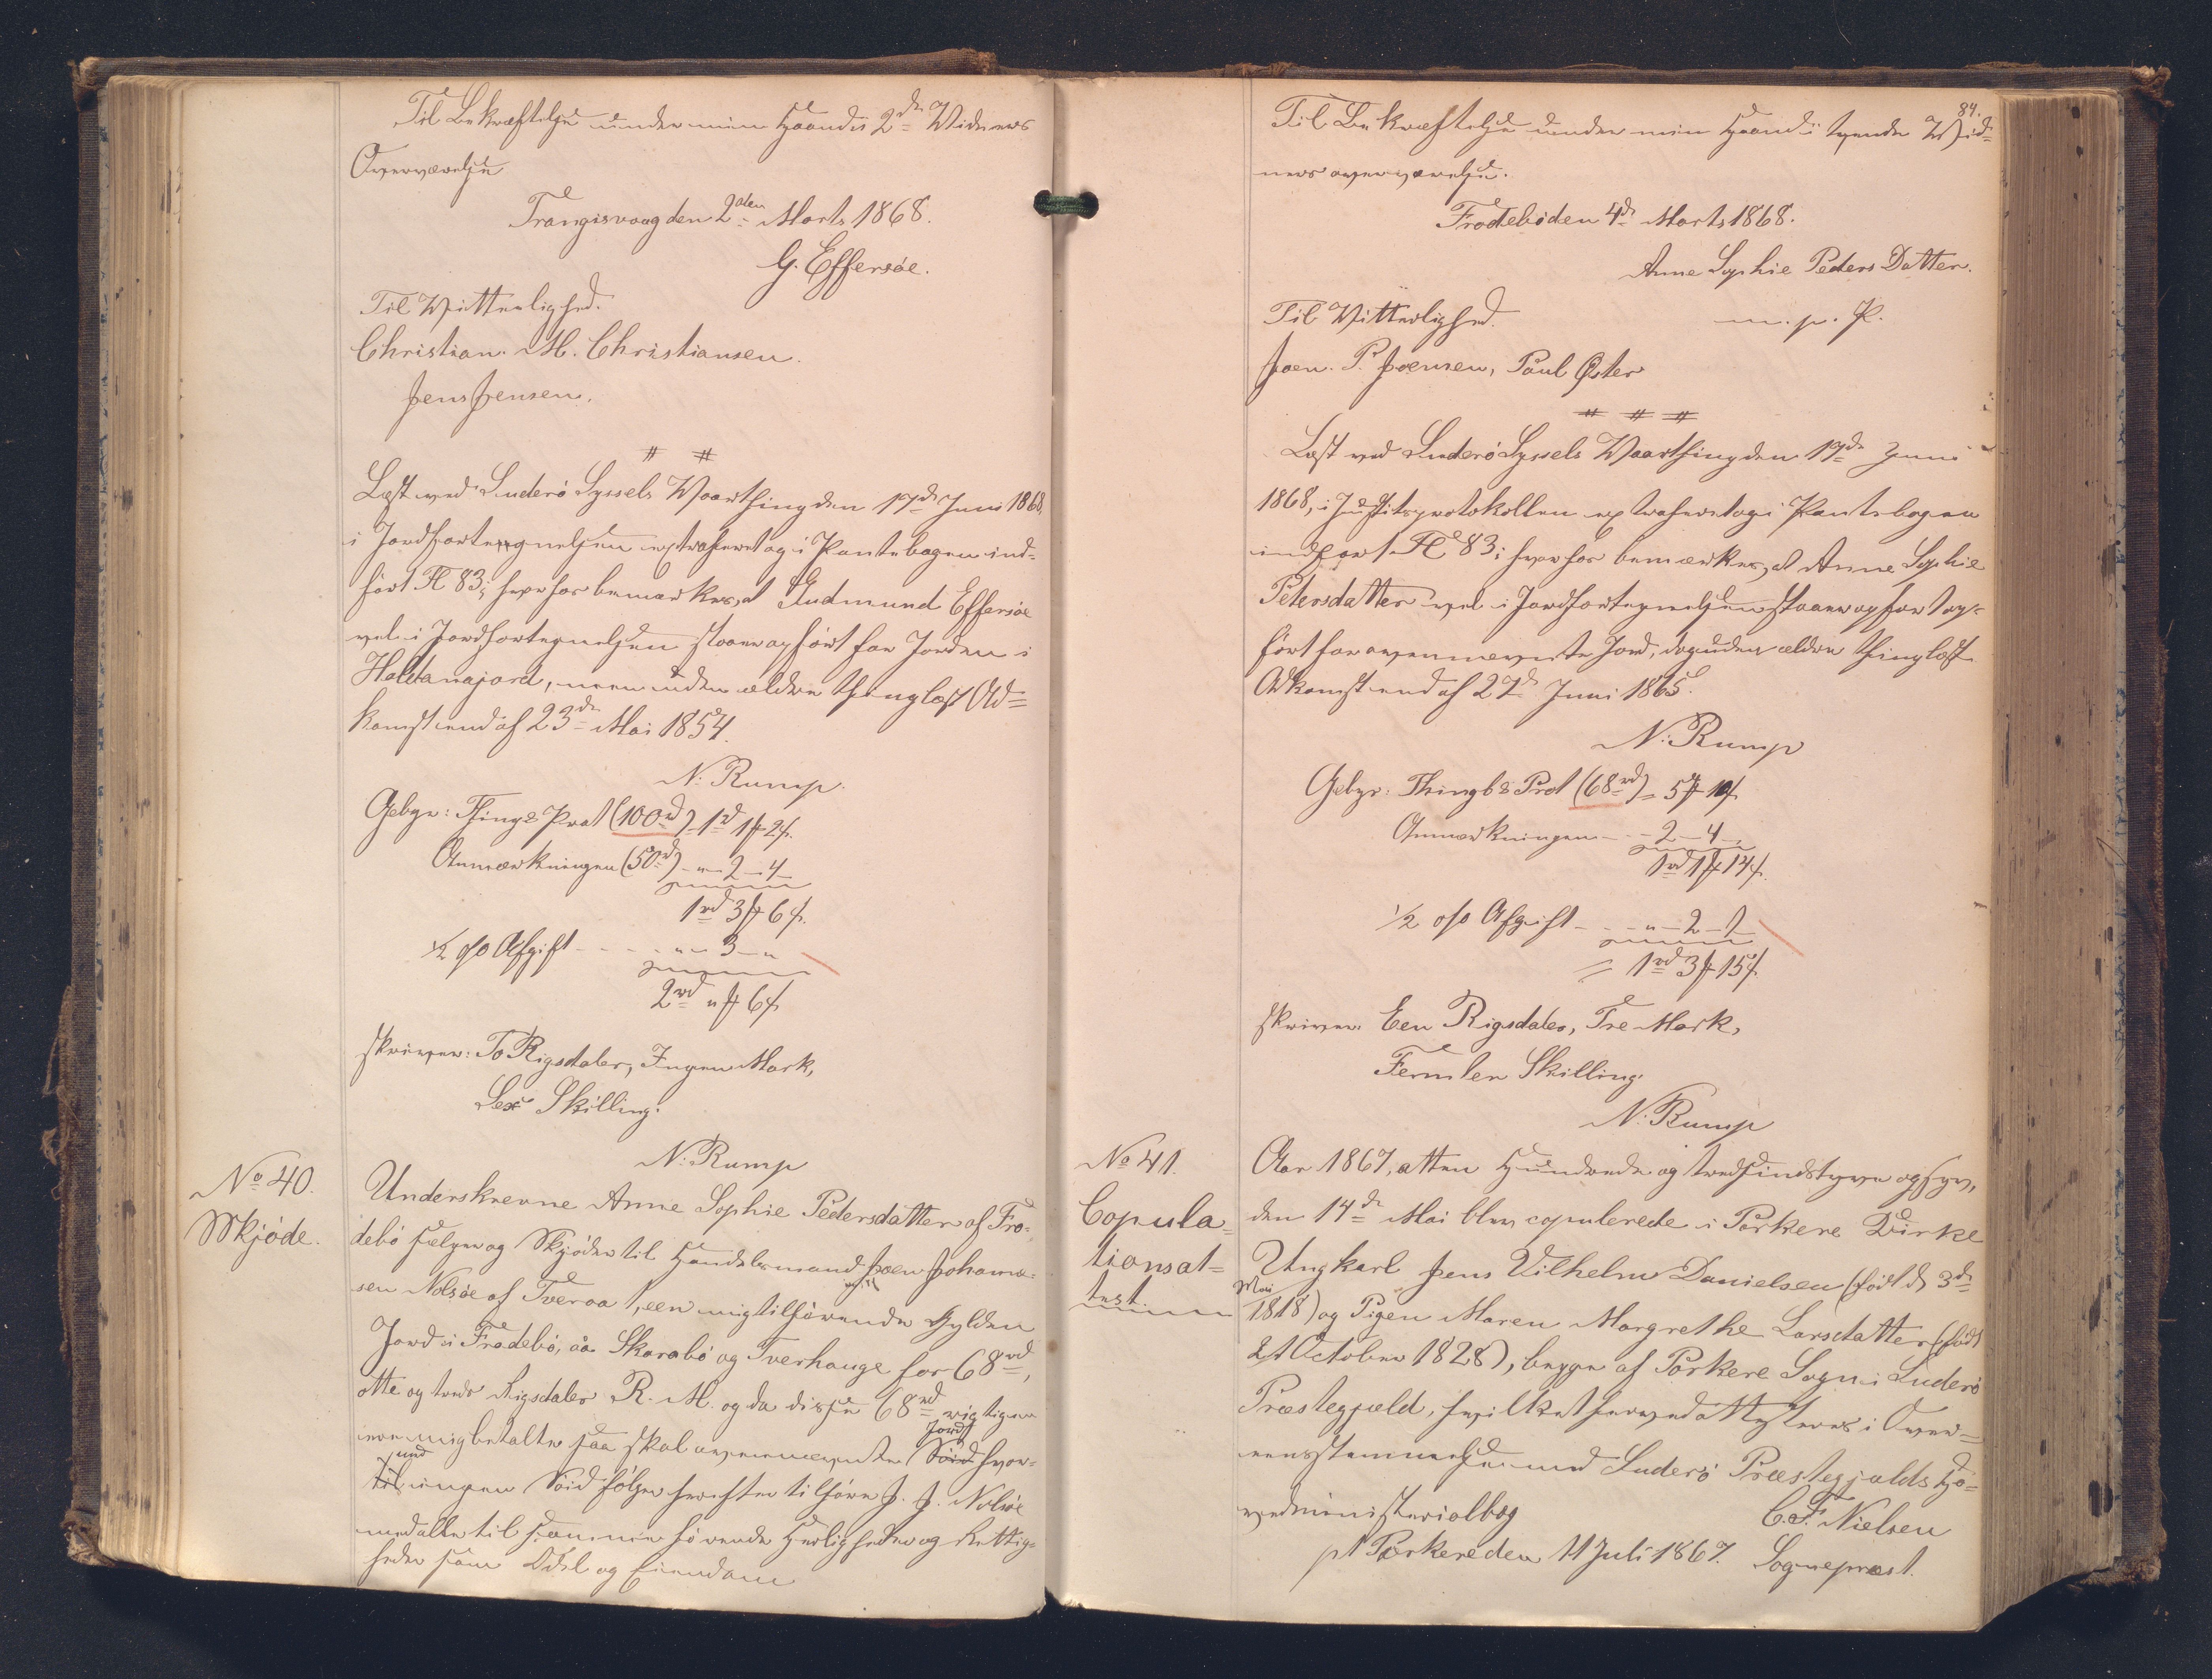 Til Bekræftelse under min Haand i 2de Widners
Overværelse
Trangisvaag den 2den Marts 1868.
G. Effersøe.
Til Witterlighed.
Christian. M. Christiansen.
Jens Jensen.
# #
Læst ved Suderö Syssels Vaarthing den 17de Juni 1868,
i Jordfortegnelsen extraheret og i Pantebogen ind-
fört Fl 83; hvorfor bemærkes, at Gudmund Effersøe
vel i Jordfortegnelsen staaer opfört for Jorden i
Holtanajord, men uden ældre thinglæst Ad-
komst end af 23de Mai 1854.
N. Rump.
Gebyr: Thing & Prot (100rd) 1rd 1# 2ß.
Anmærkningen (50rd) - " - 2 - 4 -
1rd 3# 6ß.
1/2 o/o Afgift - - - - " - 3 - "
2rd "# 6ß
skriver: To Rigsdaler, Ingen Mark,
Sex Skilling.
N. Rump
No 40.
Skjöde.
Underskrevne Anne Sophie Pedersdatter af Fro-
debö sælger og Skjöder til Handelsmand Joen Johanne-
sen Nolsøe af Tveraa 1, een mig tilhörende Gylden
Jord i Frodebö, aa Skarabö og Tverhauge for 68rd,
otte og treds Rigsdaler R. M. og da disse 68rd rigtigen
ere mig betalte saa skal ovennævnte Söid Jord hvor-
til med ingen Söid fölger herefter tilhöre J. J. Nolsöe
med alle til samme hörende Herligheder og Rettig-
heder som Odel og Eiendom
84.
Til Bekræftelse under min Haand i tvende Wid-
ners overværelse.
Frodebö den 4de Marts 1868.
Anne Sophie Peders Datter.
m. p. P.
Til Vitterlighed.
Joen. P. Joensen, Poul Öster
# # #
Læst ved Suderö Syssels Vaarthing den 17de Juni
1868, i Justitsprotokollen extraheret og i Pantebogen
indfört Fl 83; hvorfor bemærkes, at Anne Sophie
Petersdatter vel i Jordfortegnelsen staaer opfört op-
fört for ovennævnte Jord, dog uden ældre thinglæst
Adkomst end af 27de Juni 1865.
N. Rump
Gebyr: Thingl & Prot (68rd) = 5# 10ß
Anmærkningen - - - 2 - 4 -
1rd 1# 14ß.
1/2 o/o Afgift - - - " - 2 - 1 -
= 1rd 3# 15ß.
skriver. Een Rigsdaler, Tre Mark,
Femten Skilling.
N. Rump
No 41.
Copula-
tionsat-
test.
Aar 1867, atten Hundrede og tredsindstyve og syv,
den 14de Mai blev copulerede i Porkere Kirke
Ungkarl Jens Vilhelm Danielsen (födt d. 3de
Mai
1818) og Pigen Maren Margrethe Larsdatter (födt
21 October 1828), begge af Porkere Sogn i Suderö
Præstegjæld, hvilket herved attesteres i Over-
eensstemmelse med Suderö Præstegjælds Ho-
vedministerialbog
C. F. Nielsen
pt Porkere den 11 Juli 1867. Sognepræst.